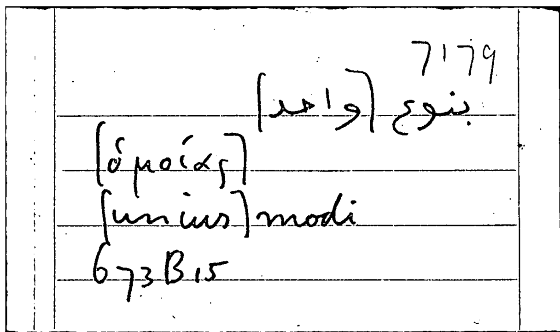 7179
بنوع [واحد]
[ὁμοίας]
[unius] modi
673B15